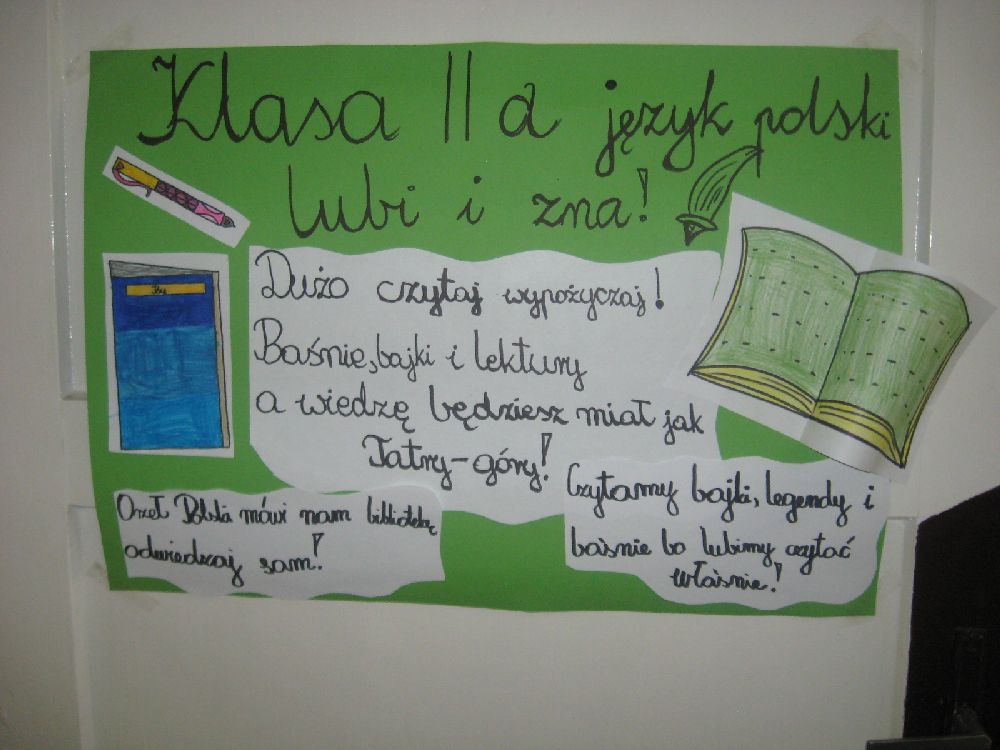 Klasa II a język polski
lubi i zna!
Dużo czytaj wypożyczaj!
Baśnie, bajki i lektury
a wiedzę będziesz miał jak
Tatry-góry!
Orzeł mówi nam bibliotekę
odwiedzaj sam!
Czytamy bajki, legendy i
baśnie bo lubimy czytać
właśnie!